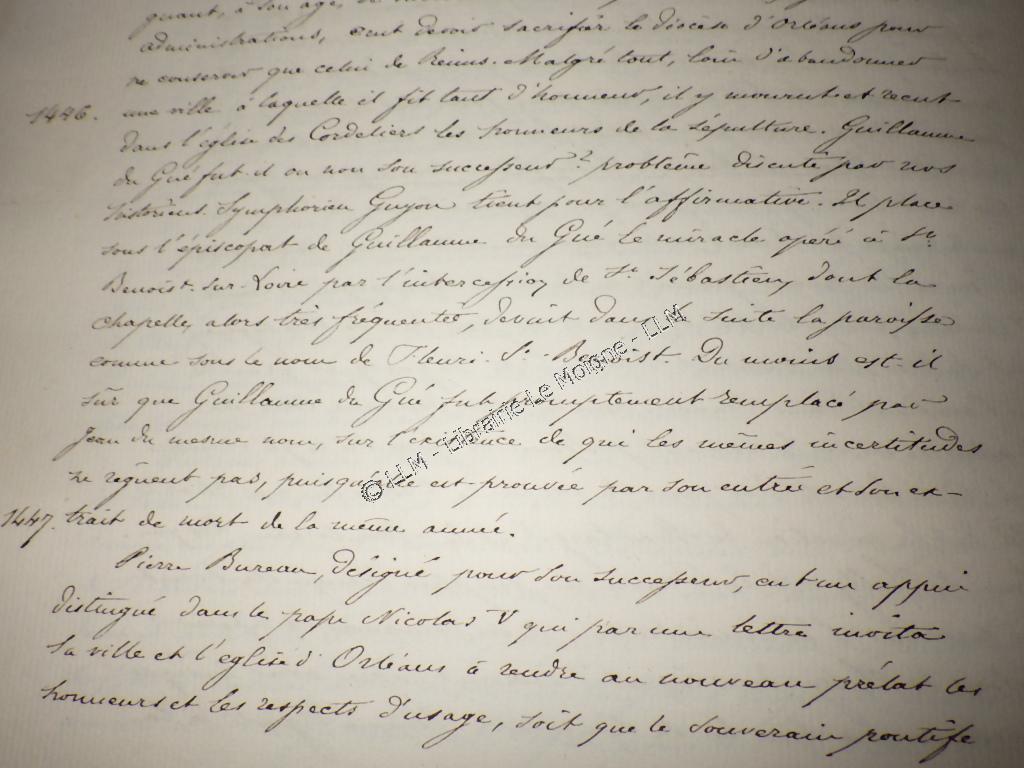 quant, à son age, de
administrations, crut devoir sacrifier le diocèse d'Orléans pour
ne conserver que celui de Reims. Malgré tout, loin d'abandonner
1446. une ville à laquelle il fit tant d'honneur, il y mourut et reçut
dans l'église des Cordeliers les honneurs de la sépulture. Guillaume
du Gué fut-il ou non son successeur? problême discuté par nos
historiens. Symphorien Guyon tient pour l'affirmative. Il place
sous l'épiscopat de Guillaume du Gué le miracle opéré à St.
Benoist-sur-Loire par l'intercession de St. Sébastien, dont la
chapelle, alors très fréquentée, devint dans la suite la paroisse
connue sous le nom de Fleuri-St-Benoist. Du moins est-il
sûr que Guillaume du Gué fut promptement remplacé par
Jean du mesme nom, sur l'existence de qui les mêmes incertitudes
ne règnent pas, puisqu'elle est prouvée par son entrée et son ex-
1447. trait de mort de la même année.
Pierre Bureau, désigné pour son successeur, eut un appui
distingué dans le pape Nicolas V qui par une lettre invita
la ville et l'église d'Orléans à rendre au nouveau prélat les
honneurs et les respects d'usage, soit que le souverain pontife
© LLM - Librairie Le Moigne - LLM